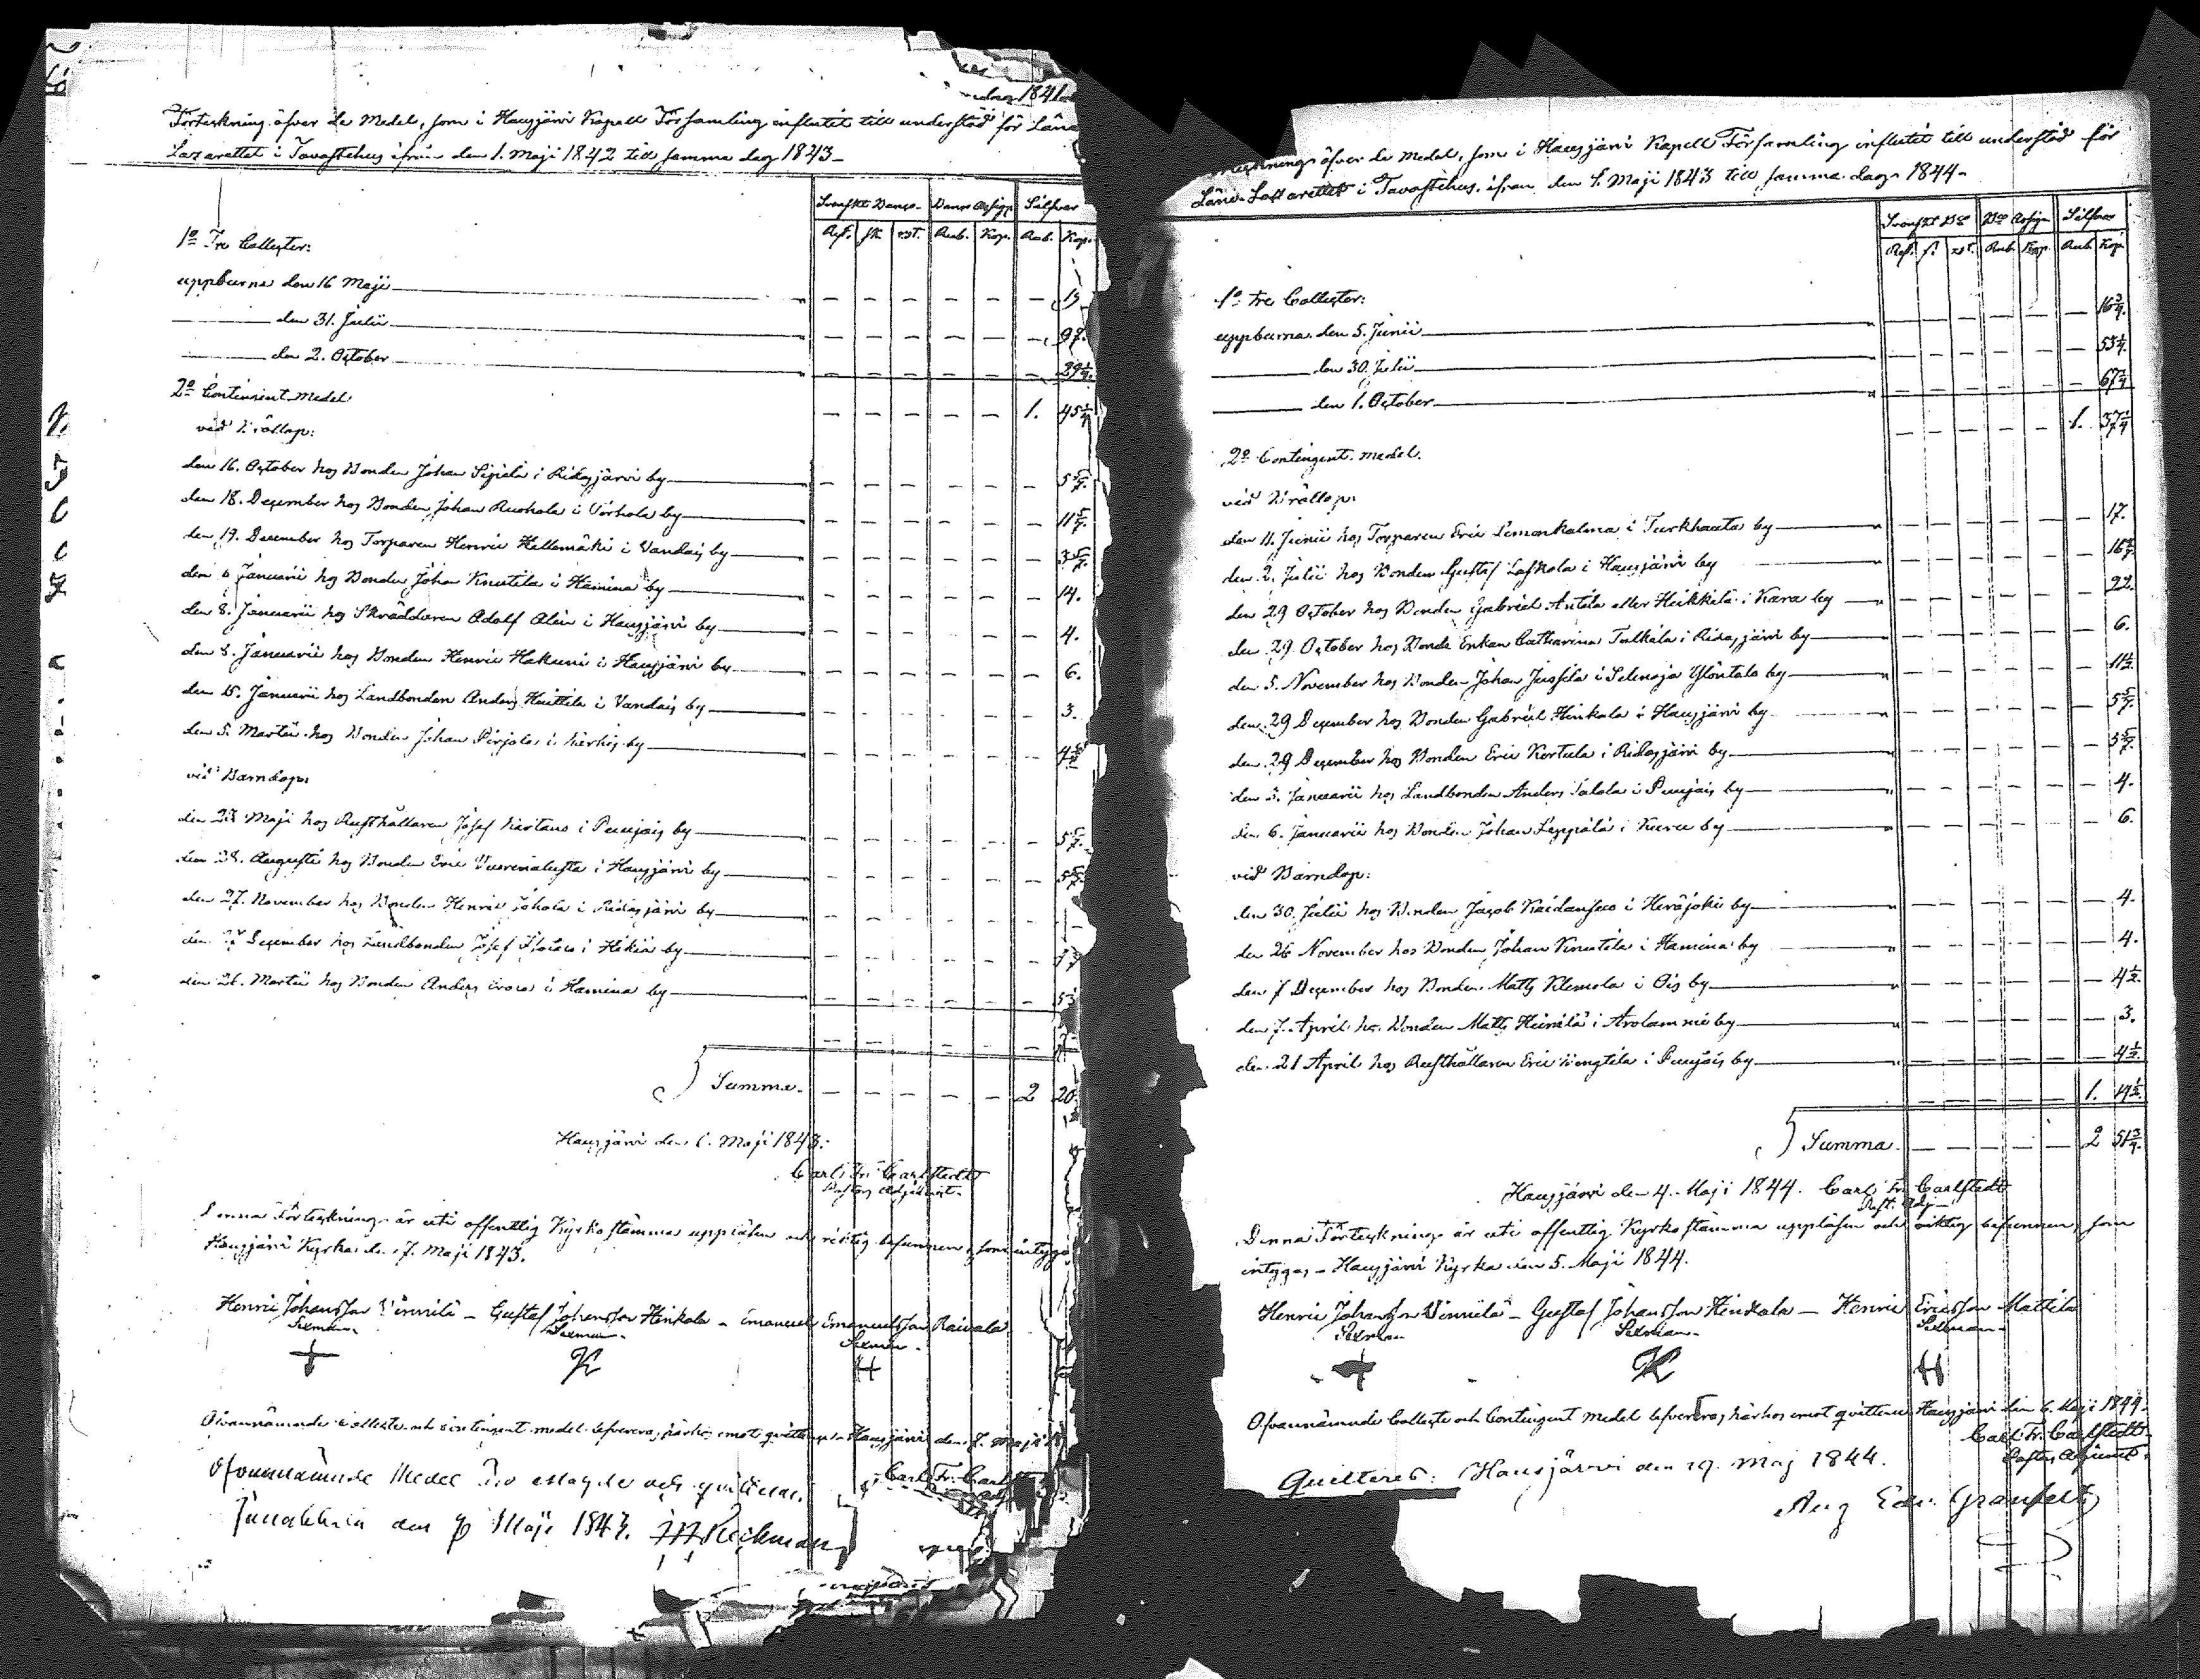 dag 1841
Förteckning öfver de Medel, som i Hausjärvi Kapell Församling influtit till understöd för Läns
Lazarettet i Tavastehus ifrån den 1. Maji 1842 till samma dag 1843.
Svenskt Banco. Banco Assign. Silfver
Rdr. sk. rst. Rub. Kop. Rub. Kop.
1o Tre Collecter:
uppburna den 16 Maji — — — — — —
den 31. Julii — — — — — — 97.
den 2. October — — — — — — 29 1/4.
— — — — — 1. 45 1/4
2o Contingent medel.
vid Bröllop:
den 16. October hos Bonden Johan Sipilä i Ridasjärvi by — — — — — — 5 5/7.
den 18. December hos Bonden Johan Ruohola i by — — — — — — 11 5/7.
den 19. December hos Torparen Henric Kellomäki i Vandais by — — — — — — 3 5/7.
den 6 Januarii hos Bonden Johan Knutila i Hamina by — — — — — — 14.
den 8. Januarii hos Skräddaren Adolf Alin i Hausjärvi by — — — — — — 4.
den 8. Januarii hos Bonden Henric Hakuni i Hausjärvi by — — — — — — 6.
den 15. Januarii hos Landbonden Anders Huittila i Vandais by — — — — — — 3.
den 5. Martii hos Bonden Johan Pirjola i by — — — — — —
vid Barndop:
den Maji hos Rusthållaren Josef i Puujais by — — — — — — 5 5/7.
den 28. Augusti hos Bonden Eric Vuorenalusta i Hausjärvi by — — — — — — 5 5/7.
den 27. November hos Bonden Henric Johola i Ridasjärvi by — — — — — —
den December hos Landbonden Josef i Hikiä by — — — — — —
den 26. Martii hos Bonden Anders i Hamina by — — — — — —
Summa. — — — — — 2 20.
Hausjärvi den 1. Maji 1843.
Carl Fr. Carlstedt
Pastors Adjunct.
Denna Förteckning är uti offentlig Kyrkostämma uppläsen och riktig befunnen, som intygas
Hausjärvi Kyrka den 7. Maji 1843.
Henric Johansson Vinnilä – Gustaf Johansson Hinkala – Emanuel Emanuelsson Raivala
Sexman. Sexman. Sexman.
Ofvannämnde Collecte och Contingent medel levereras härhos emot quittence Hausjärvi den 7. Maji
Carl Fr. Carlstedt
Ofvannämnde Medel äro erlagde och quitteras.
Janakkala den Maji 1843.
Förteckning öfver de Medel, som i Hausjärvi Kapell Församling influtit till understöd för
Läns-Lazarettet i Tavastehus, ifrån den 1. Maji 1843 till samma dag 1844.
Svenskt Bco Bco Assign. Silfver
Rdr. s. rst. Rub. Kop. Rub. Kop.
1o Tre Collecter:
uppburna den 5. Junii — — — — — — 16 3/4.
den 30. Julii — — — — — — 53 1/4.
den 1. October — — — — — — 67 1/4
— — — — — 1. 37 1/4
2o Contingent medel.
vid Bröllop:
den 11. Junii hos Torparen Eric Simonkalma i Turkhauta by — — — — — — 17.
den 2. Julii hos Bonden Gustaf Laskola i Hausjärvi by — — — — — —
den 29 October hos Bonden Gabriel Antila eller Heikkilä i Kara by — — — — — — 22.
den 29 October hos Bonde Enkan Catharina Talkala i Ridasjärvi by — — — — — — 6.
den 5. November hos Bonden Johan Jussila i Selenoja Ylöntalo by — — — — — — 11 1/2.
den 29 December hos Bonden Gabriel Hinkala i Hausjärvi by — — — — — — 5 5/7.
den 29 December hos Bonden Eric Kertula i Ridasjärvi by — — — — — — 5 5/7.
den 3. Januarii hos Landbonden Anders Talola i Puujais by — — — — — — 4.
den 6. Januarii hos Bonden Johan Seppälä i Kuru by — — — — — — 6.
vid Barndop:
den 30. Julii hos Bonden Jacob Kaidanpää i Heräjoki by — — — — — — 4.
den 26 November hos Bonden Johan Knutila i Hamina by — — — — — — 4.
den 7 December hos Bonden Matts Klemola i Ois by — — — — — — 4 1/2.
den 7. April hos Bonden Matts Heinilä i Arolammi by — — — — — — 3.
den 21 April hos Rusthållaren Eric i Puujais by — — — — — — 4 1/2.
— — — — — 1. 14 1/2.
Summa. — — — — — 2 51 3/4.
Hausjärvi den 4. Maji 1844. Carl Fr. Carlstedt
Past. Adj.
Denna Förteckning är uti offentlig Kyrkostämma uppläsen och riktig befunnen, som
intygas – Hausjärvi Kyrka den 5. Maji 1844.
Henric Johansson Vinnilä – Gustaf Johansson Hinkala – Henric Ericsson Mattila
Sexman. Sexman. Sexman.
Ofvannämnde Collecte och Contingent medel levereras härhos emot quittence Hausjärvi den 6. Maji 1844.
Carl Fr. Carlstedt.
Pastors Adjunct.
Quitteras: Hausjärvi den 19. Maj 1844.
Aug Edv. Granfelt